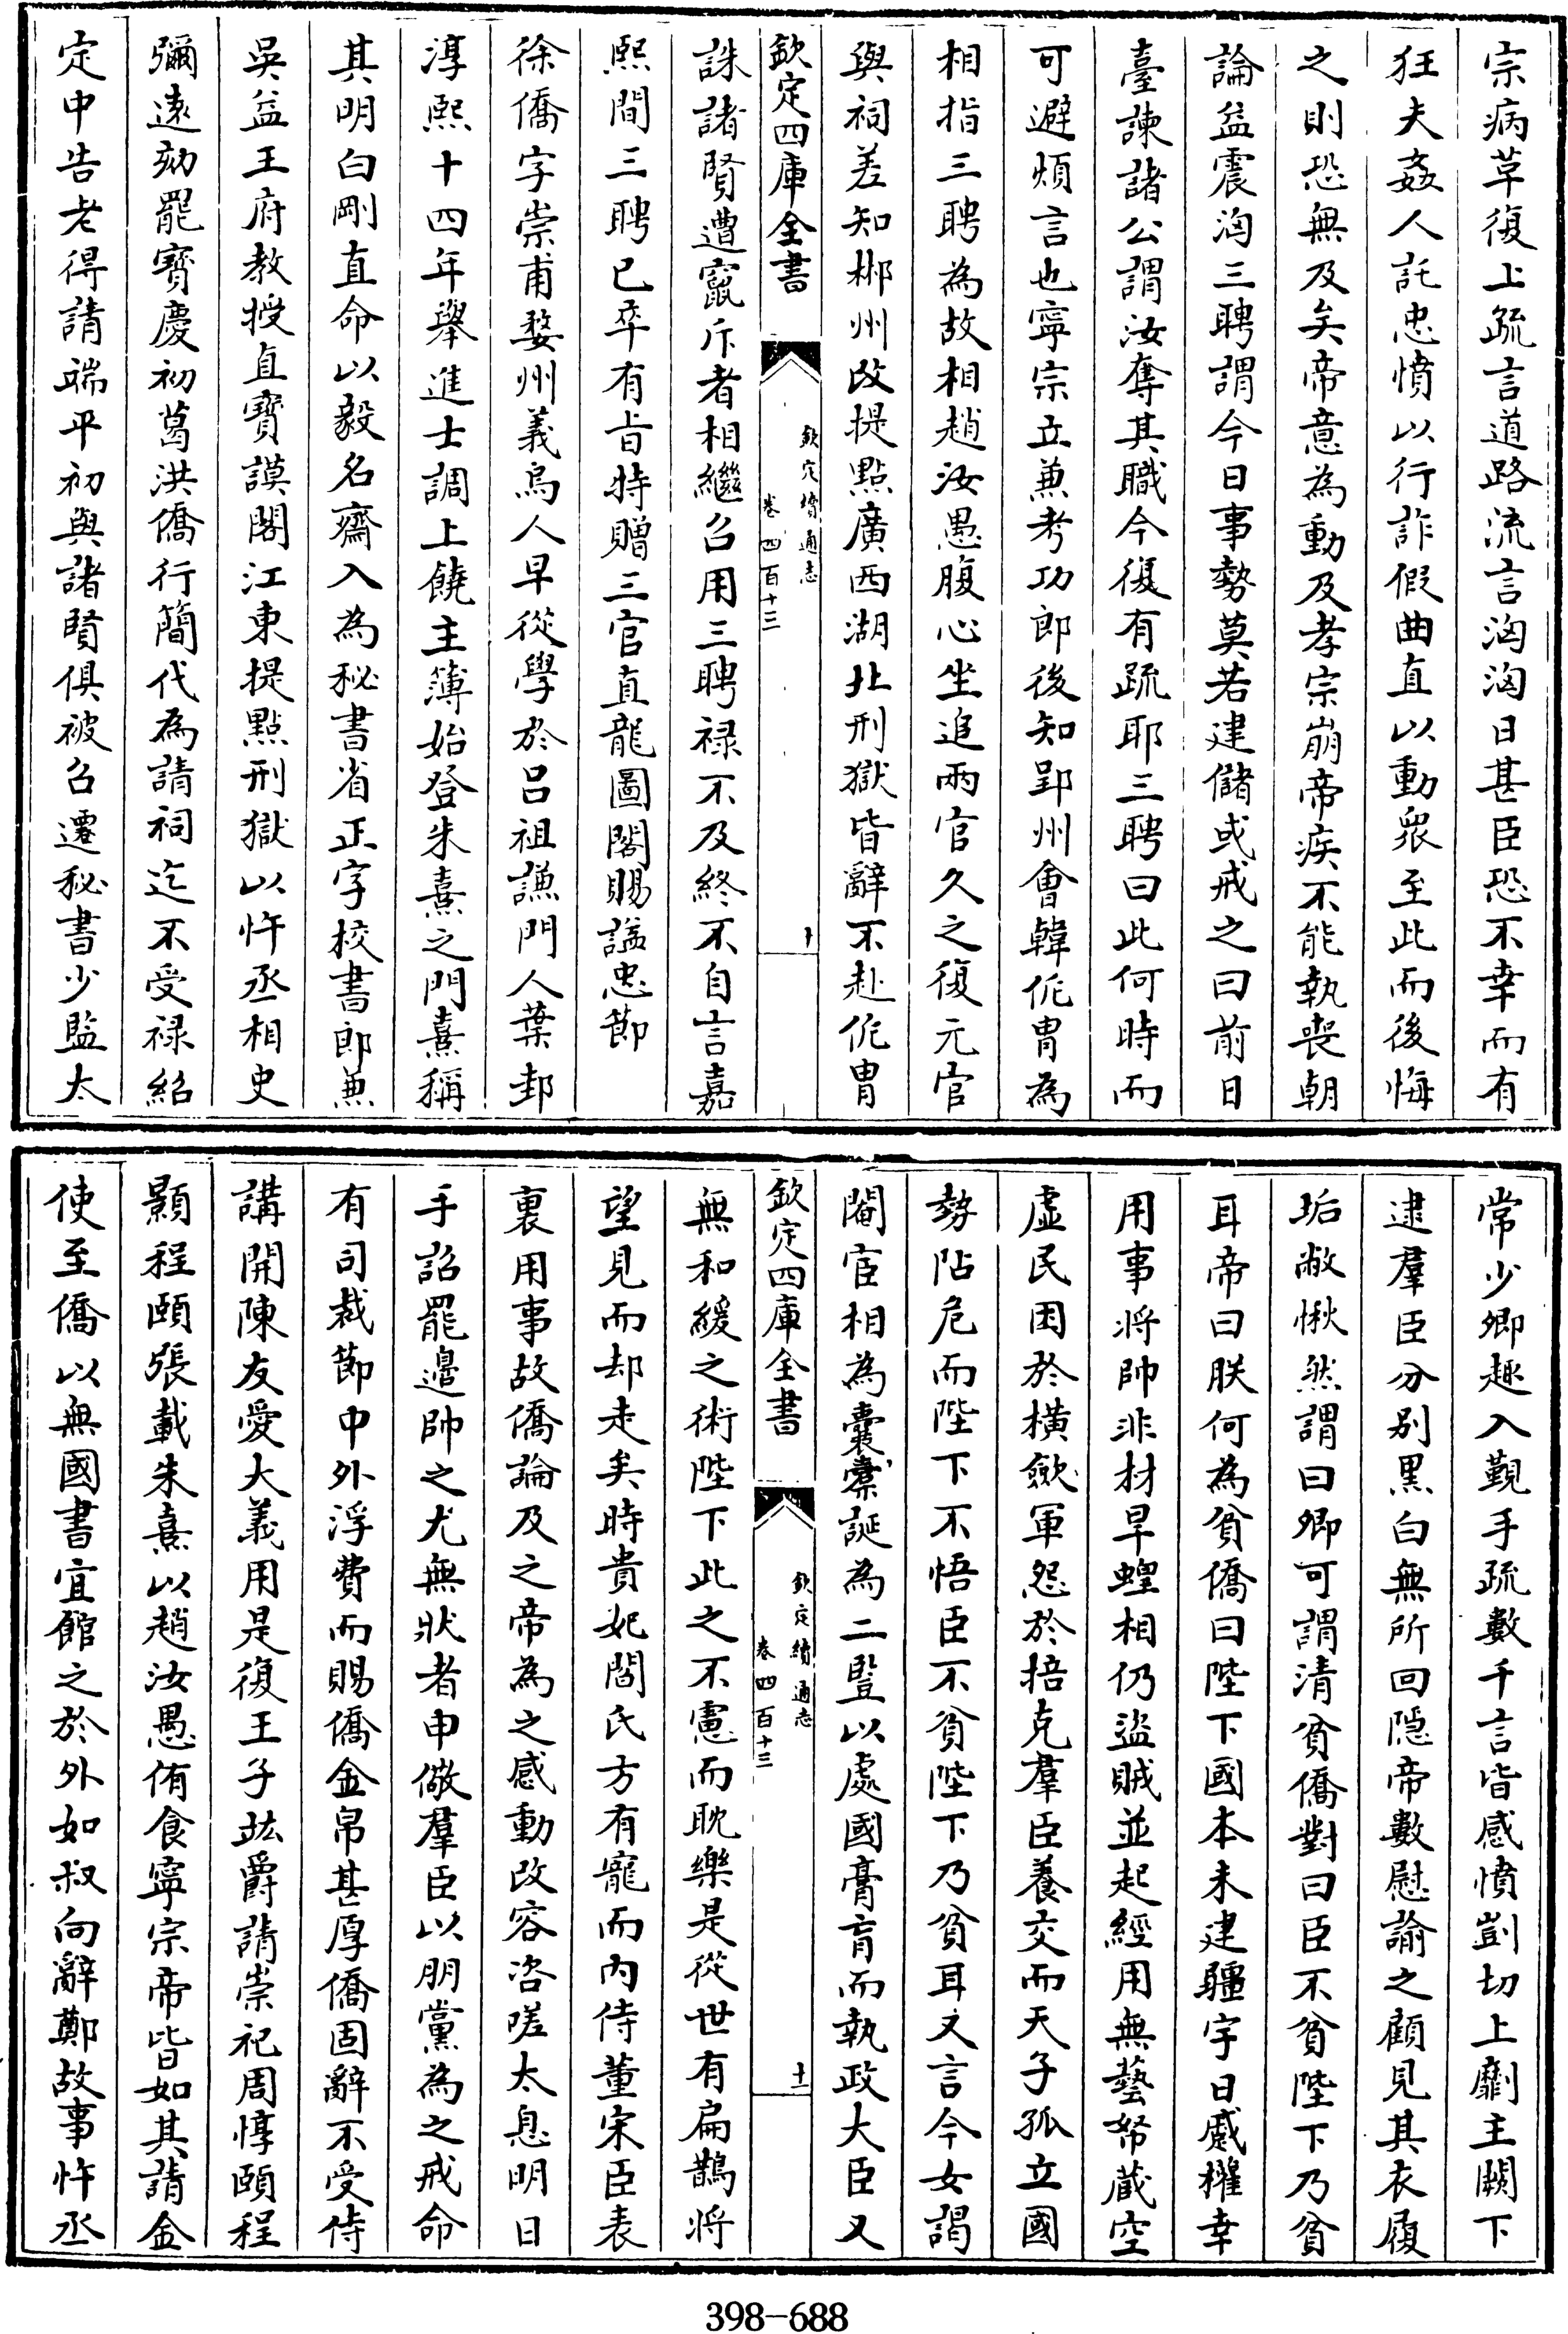 宗病草復上疏言道路流言洶洶日甚臣恐不幸而有
狂夫姦人託忠憤以行詐假曲直以動衆至此而後悔
之則恐無及矣帝意為動及孝宗崩帝疾不能執喪朝
論益震洶三聘謂今日事勢莫若建儲或戒之曰前日
臺諫諸公謂汝奪其職今復有疏耶三聘曰此何時而
可避煩言也寧宗立兼考功郎後知郢州會韓侂冑為
相指三聘為故相趙汝愚腹心坐追兩官久之復元官
與祠差知郴州改提點廣西湖北刑獄皆辭不赴侂冑
欽定四庫全書
欽定續通志
卷四百十三
十
誅諸賢遭竄斥者相繼召用三聘禄不及終不自言嘉
熙間三聘已卒有旨特贈三官直龍圖閣賜諡忠節
徐僑字崇甫婺州義烏人早從學於呂祖謙門人葉邽
淳熙十四年舉進士調上饒主簿始登朱熹之門熹稱
其明白剛直命以毅名齋入為秘書省正字校書郎兼
吳益王府教授直寶謨閣江東提點刑獄以忤丞相史
彌遠劾罷寶慶初葛洪僑行簡代為請祠迄不受禄紹
定中告老得請端平初與諸賢俱被召遷秘書少監太
常少卿趣入覲手疏數千言皆感憤剴切上劘主闕下
逮羣臣分別黒白無所回隱帝數慰諭之顧見其衣履
垢敝愀然謂曰卿可謂清貧僑對曰臣不貧陛下乃貧
耳帝曰朕何為貧僑曰陛下國本未建疆宇日蹙權幸
用事將帥非材旱蝗相仍盜賊並起經用無藝帑藏空
虛民困於橫歛軍怨於掊克羣臣養交而天子孤立國
勢阽危而陛下不悟臣不貧陛下乃貧耳又言今女謁
閹宦相為囊橐誕為二豎以處國膏肓而執政大臣又
欽定四庫全書
欽定續通志
卷四百十三
十一
無和緩之術陛下此之不慮而耽樂是從世有扁鵲將
望見而却走矣時貴妃閻氏方有寵而內侍董宋臣表
裏用事故僑論及之帝為之感動改容咨嗟太息明日
手詔罷邊帥之尤無狀者申儆羣臣以朋黨為之戒命
有司裁節中外浮費而賜僑金帛甚厚僑固辭不受侍
講開陳友愛大義用是復王子竑爵請崇祀周惇頤程
顥程頤張載朱熹以趙汝愚侑食寧宗帝皆如其請金
使至僑以無國書宜館之於外如叔向辭鄭故事忤丞
398-688